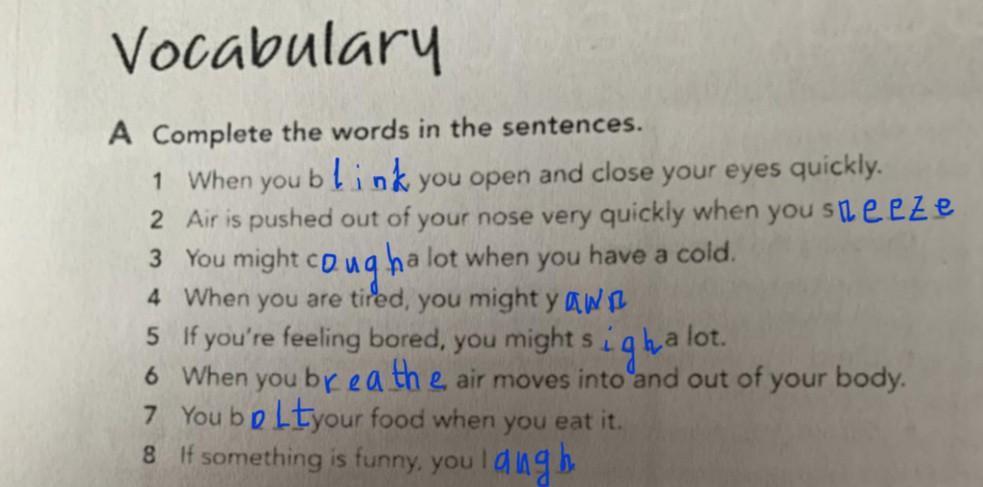 Vocabulary
A Complete the words in the sentences.
1 When you blink you open and close your eyes quickly.
2 Air is pushed out of your nose very quickly when you sneeze
3 You might cough a lot when you have a cold.
4 When you are tired, you might yawn
5 If you're feeling bored, you might sigh a lot.
6 When you breathe air moves into and out of your body.
7 You bolt your food when you eat it.
8 If something is funny, you laugh